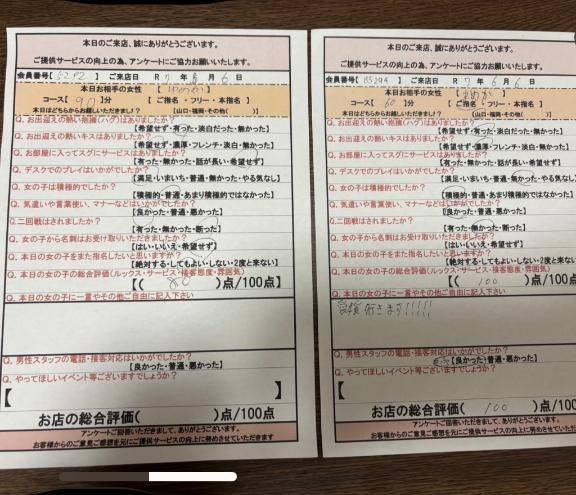 本日のご来店、誠にありがとうございます。
ご提供サービスの向上の為、アンケートにご協力お願いいたします。
会員番号【5292】 ご来店日 R 7 年 月 6 日
本日お相手の女性【ゆめか】
コース【90】分 【 ご指名 ・ フリー ・ 本指名 】
本日はどちらからお越しいただきました!? (山口・福岡・その他( ))
Q. お出迎えの熱い抱擁(ハグ)はありましたか?
【希望せず・有った・淡白だった・無かった】
Q. お出迎えの熱いキスはありましたか?
【希望せず・濃厚・フレンチ・淡白・無かった】
Q. お部屋に入ってスグにサービスはありましたか?
【有った・無かった・話が長い・希望せず】
Q. デスクでのプレイはいかがでしたか?
【満足・いまいち・普通・無かった・やる気なし】
Q. 女の子は積極的でしたか?
【積極的・普通・あまり積極的ではなかった】
Q. 気遣いや言葉使い、マナーなどはいかがでしたか?
【良かった・普通・悪かった】
Q. 二回戦はされましたか?
【有った・無かった・断った】
Q. 女の子から名刺はお受け取りいただきましたか?
【はい・いいえ・希望せず】
Q. 本日の女の子をまた指名したいと思いますか?
【絶対する・してもよい・しない・2度と来ない】
Q. 本日の女の子の総合評価(ルックス・サービス・接客態度・雰囲気)
【( 80 )点/100点】
Q. 本日の女の子に一言やその他ご自由に記入下さい
Q. 男性スタッフの電話・接客対応はいかがでしたか?
【良かった・普通・悪かった】
Q. やってほしいイベント等ございますでしょうか?
【 】
お店の総合評価( )点/100点
アンケートご回答いただきまして、ありがとうございます。
お客様からのご意見ご感想を元にご提供サービスの向上に努めさせていただきます
本日のご来店、誠にありがとうございます。
ご提供サービスの向上の為、アンケートにご協力お願いいたします。
会員番号【85294】 ご来店日 R 7 年 6 月 6 日
本日お相手の女性【ゆめか】
コース【60】分 【 ご指名 ・ フリー ・ 本指名
本日はどちらからお越しいただきました!? (山口・福岡・その他(
Q. お出迎えの熱い抱擁(ハグ)はありましたか?
【希望せず・有った・淡白だった・無かった】
Q. お出迎えの熱いキスはありましたか?
【希望せず・濃厚・フレンチ・淡白・無かった】
Q. お部屋に入ってスグにサービスはありましたか?
【有った・無かった・話が長い・希望せず】
Q. デスクでのプレイはいかがでしたか?
【満足・いまいち・普通・無かった・やる気なし】
Q. 女の子は積極的でしたか?
【積極的・普通・あまり積極的ではなかった】
Q. 気遣いや言葉使い、マナーなどはいかがでしたか?
【良かった・普通・悪かった】
Q. 二回戦はされましたか?
【有った・無かった・断った】
Q. 女の子から名刺はお受け取りいただきましたか?
【はい・いいえ・希望せず】
Q. 本日の女の子をまた指名したいと思いますか?
【絶対する・してもよい・しない・2度と来ない】
Q. 本日の女の子の総合評価(ルックス・サービス・接客態度・雰囲気)
【( 100 )点/100点】
Q. 本日の女の子に一言やその他ご自由に記入下さい
行きます!!!!!
Q. 男性スタッフの電話・接客対応はいかがでしたか?
【良かった・普通・悪かった】
Q. やってほしいイベント等ございますでしょうか?
【
お店の総合評価( 100 )点/100点
アンケートご回答いただきまして、ありがとうございます。
お客様からのご意見ご感想を元にご提供サービスの向上に努めさせていただきます